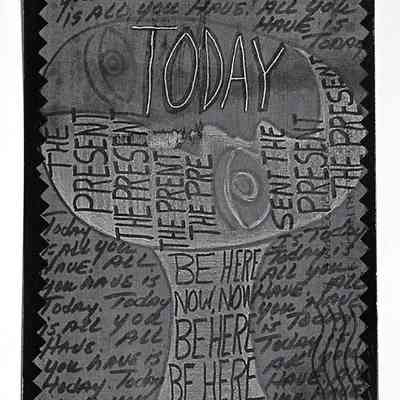 IS ALL YOU HAVE! ALL YOU
HAVE IS
TODAY
TODAY
THE PRESENT
THE PRESENT
THE PRENT
THE PRE
SEN THE
PRESENT
THE PRESENT
BE HERE
NOW, NOW
BE HERE
BE HERE
Today
IS ALL YOU
HAVE! ALL
YOU HAVE IS
Today. Today
IS ALL YOU
HAVE ALL
YOU HAVE IS
Today. Today
Today IS
ALL YOU
HAVE ALL
YOU HAVE
IS TODAY
ALL YOU
HAVE